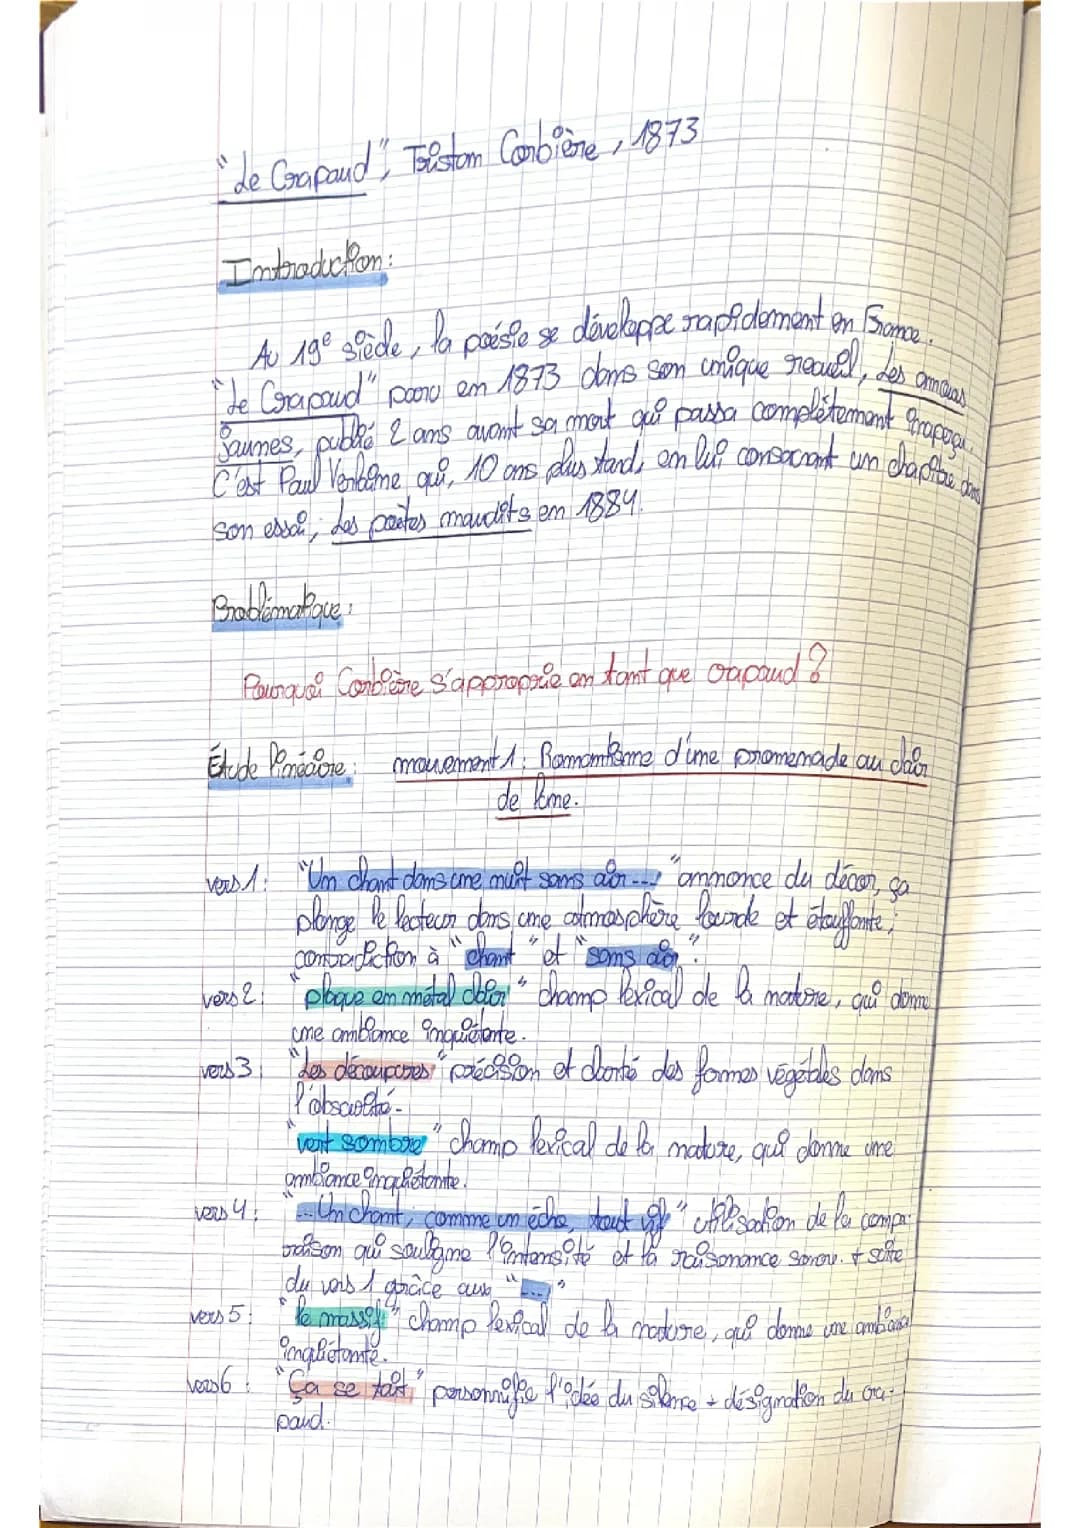 "Le Crapaud", Tristan Corbière, 1873
Introduction:
Au 19e siècle, la poésie se développe rapidement en France.
"Le Crapaud" paru en 1873 dans son unique recueil, Les amours
Jaunes, publié 2 ans avant sa mort qui passa complètement inaperçu.
C'est Paul Verlaine qui, 10 ans plus tard, en lui consacrant un chapitre dans
son essai, Les poètes maudits en 1884.
Problématique:
Pourquoi Corbière s'approprie en tant que crapaud?
Étude linéaire: mouvement 1: Romantisme d'une promenade au clair
de lune.
vers 1: "Un chant dans une nuit sans air..." annonce du décor, ça
plonge le lecteur dans une atmosphère lourde et étouffante;
contradiction à "chant" et "sans air".
vers 2: "plaque en métal clair" champ lexical de la nature, qui donne
une ambiance inquiétante.
vers 3: "Les découpures" précision et clarté des formes végétales dans
l'obscurité.
"vert sombre" champ lexical de la nature, qui donne une
ambiance inquiétante.
vers 4: "...Un chant; comme un écho, tout vif" utilisation de la compa-
raison qui souligne l'intensité et la raisonance sonore. + suite
du vers 1 grâce aux "..."
vers 5: "le massif" champ lexical de la nature, qui donne une ambiance
inquiétante.
vers 6: "Ça se tait" personnifie l'idée du silence + désignation du cra-
paud.